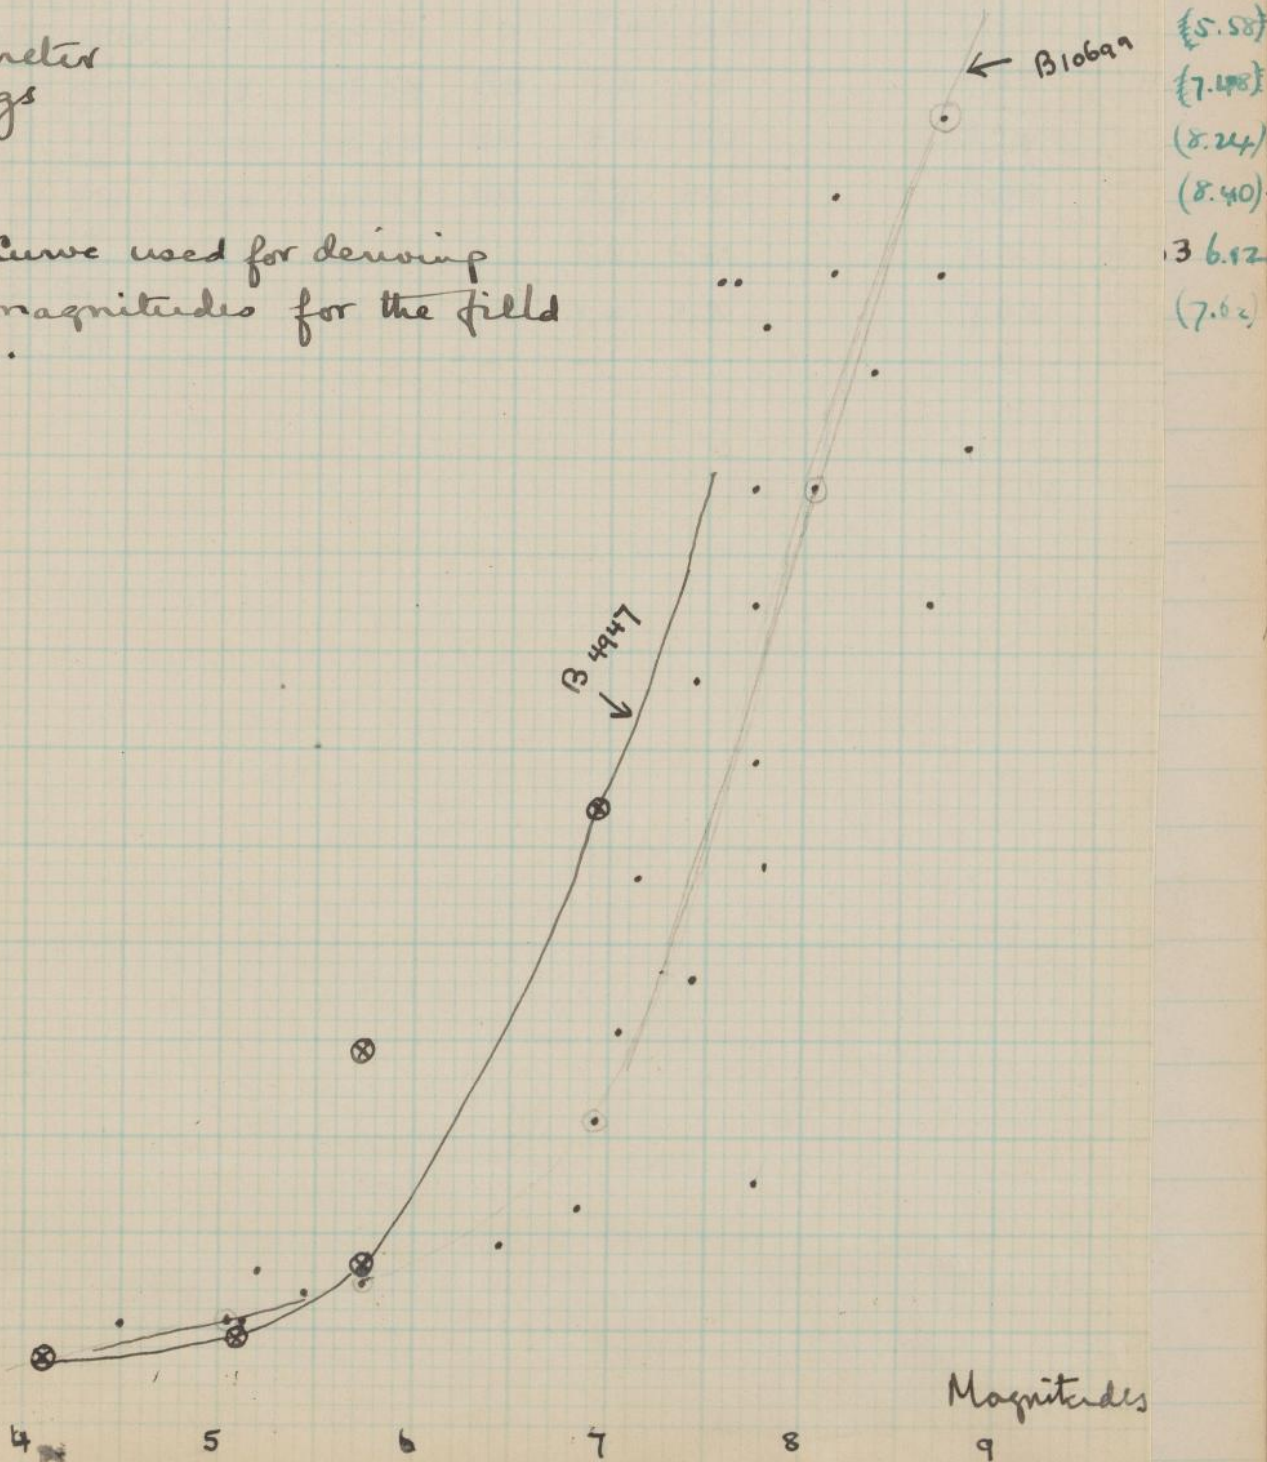 neter
gs
Curve used for deriving
magnitudes for the field
B10699
B 4947
(5.58)
(7.48)
(8.24)
(8.40)
3 6.12
(7.62)
Magnitudes
4 5 6 7 8 9